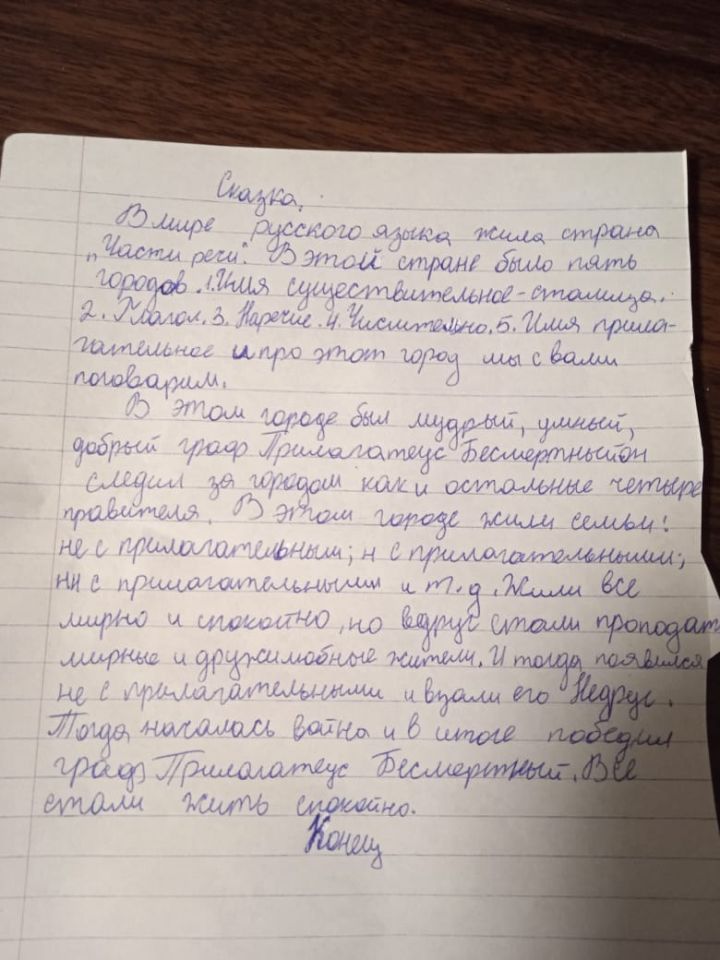 Сказка.
В мире русского языка жила страна
„Части речи". В этой стране было пять
городов. 1. Имя существительное - столица.
2. Глагол. 3. Наречие. 4. Числительно. 5. Имя прила-
гательное и про этот город мы с вами
поговарим.
В этом городе был мудрый, умный,
добрый граф Прилагатеус
следил за городом как и остальные четыре
правителя. В этом городе жили семьи:
не с прилагательным; н с прилагательными;
нн с прилагательными и т.д. Жили все
мирно и спокойно, но вдруг стали проподат
мирные и дружилюбные жители. И тогда появился
не с прилагательными и взали его Недруг.
Тогда началась война и в итоге победил
граф Прилагатеус Бесмертный. Все
стали жить спокойно.
Конец